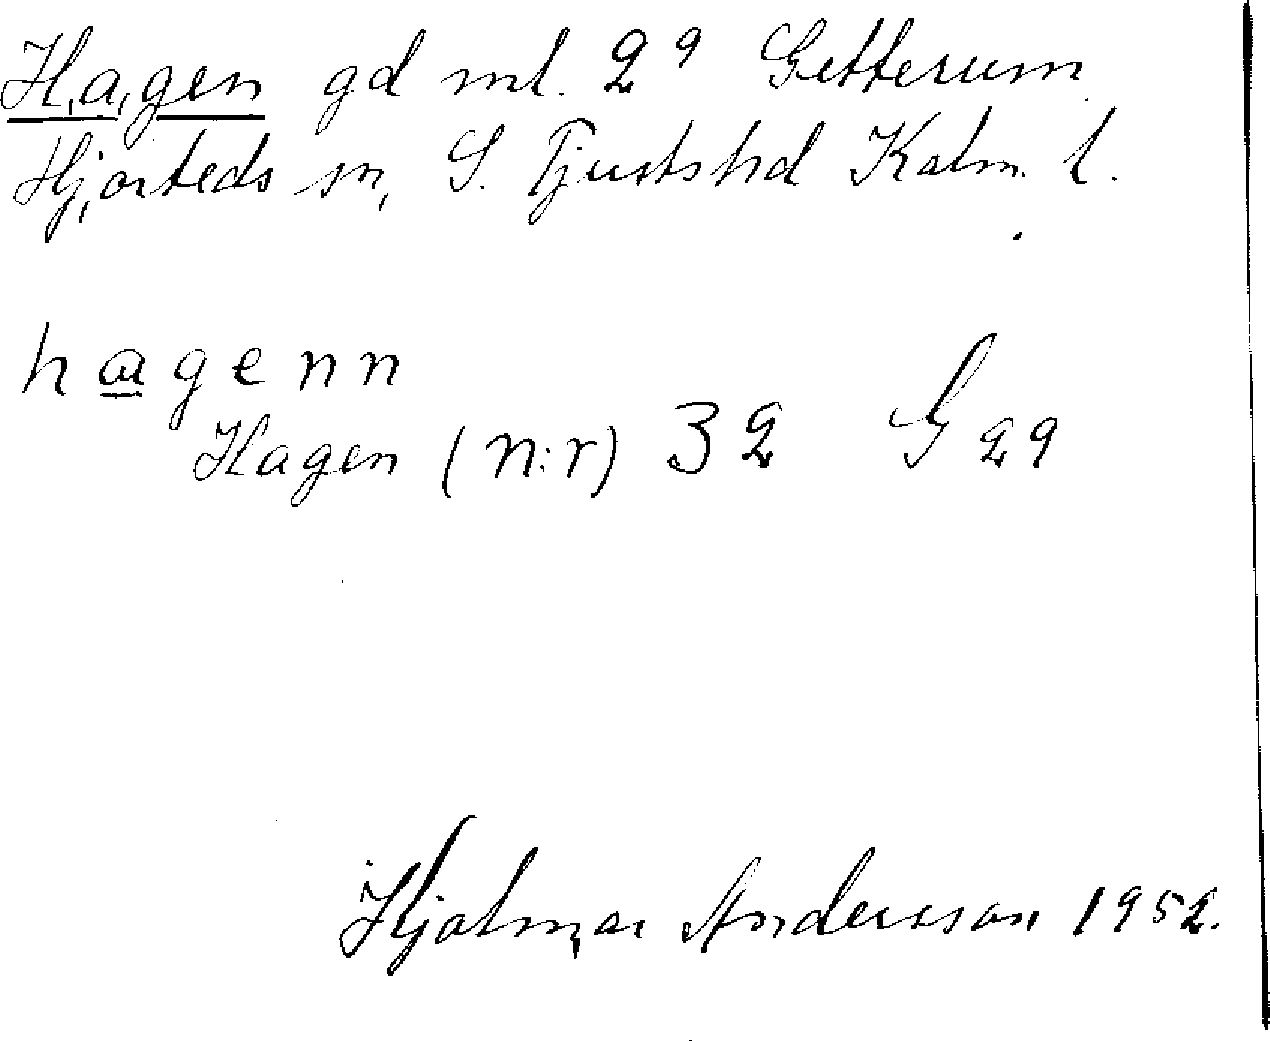 Hagen gd ml. 2⁹ Getterum
Hjorteds sn, S. Tjustshd Kalm. l.
hagenn
Hagen (n:r) 32 G 29
Hjalmar Andersson 1952.